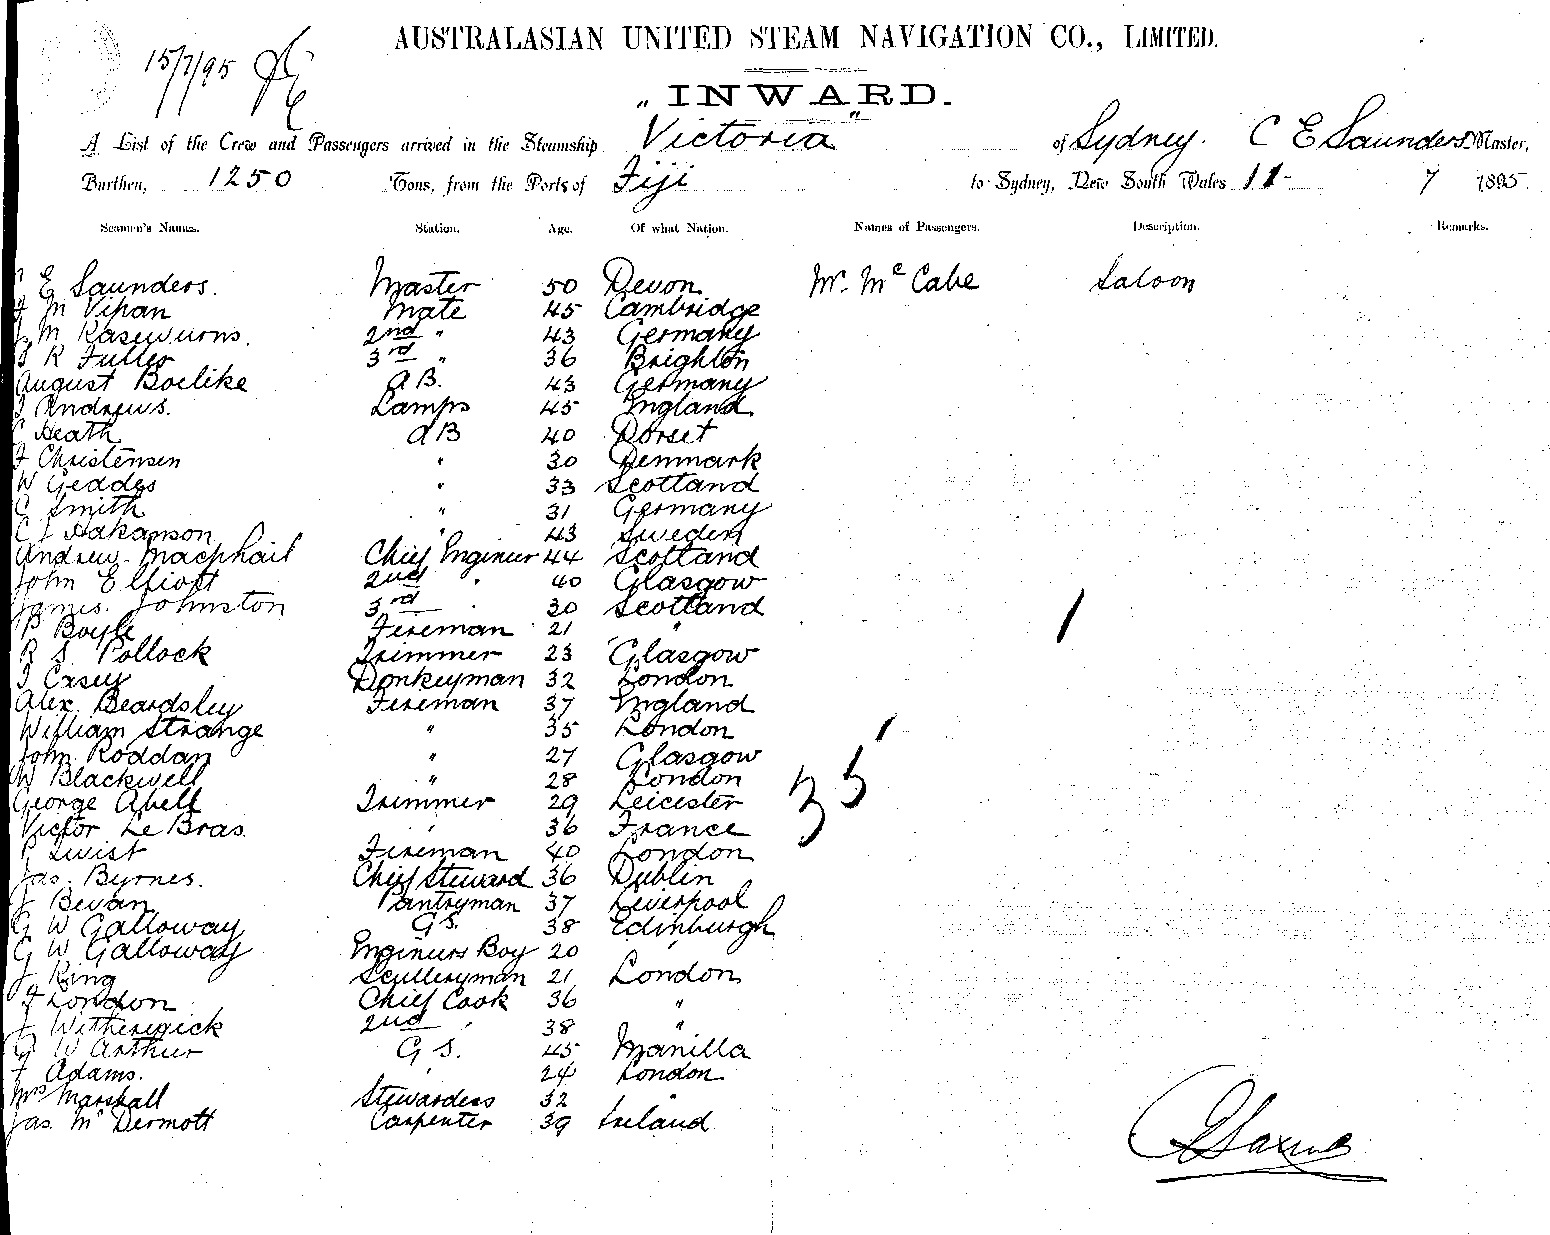 AUSTRALASIAN UNITED STEAM NAVIGATION CO., LIMITED.
15/7/95
INWARD.
A List of the Crew and Passengers arrived in the Steamship "Victoria" of Sydney. C E Saunders Master,
Burthen, 1250 Tons, from the Ports of Fiji to Sydney, New South Wales 11 - 7 1895
Seamen's Names. Station. Age. Of what Nation. Names of Passengers. Description. Remarks.
C E Saunders. Master 50 Devon Mr. McCabe Saloon
F M Vipan Mate 45 Cambridge
J M Rasewurns. 2nd " 43 Germany
F R Fuller 3rd " 36 Brighton
August Boelike A B. 43 Germany
J Andrews. Lamps 45 England
C Heath A B 40 Dorset
F Christensen " 30 Denmark
W Geddes " 33 Scotland
C Smith " 31 Germany
C J Hakanson " 43 Sweden
Andrew Macphail Chief Engineer 44 Scotland
John Elliott 2nd " 40 Glasgow
James Johnston 3rd " 30 Scotland
P Boyle Fireman 21 "
R S Pollock Trimmer 23 Glasgow
J Casey Donkeyman 32 London
Alex Beardsley Fireman 37 England
William Strange " 35 London
John Roddan " 27 Glasgow
W Blackwell " 28 London
George Abell Trimmer 29 Leicester
Victor Le Bras " 36 France
Twist Fireman 40 London
Jas. Byrnes. Chief Steward 36 Dublin
J Bevan Pantryman 37 Liverpool
G W Galloway G S. 38 Edinburgh
G W Galloway Engineers Boy 20 "
J King Sculleryman 21 London
F London Chief Cook 36 "
J Witheridgick 2nd " 38 "
G W Arthur G S. 45 Manilla
F Adams. 24 London
Mrs Marshall Stewardess 32 "
Jas. McDermott Carpenter 39 Ireland
1
35